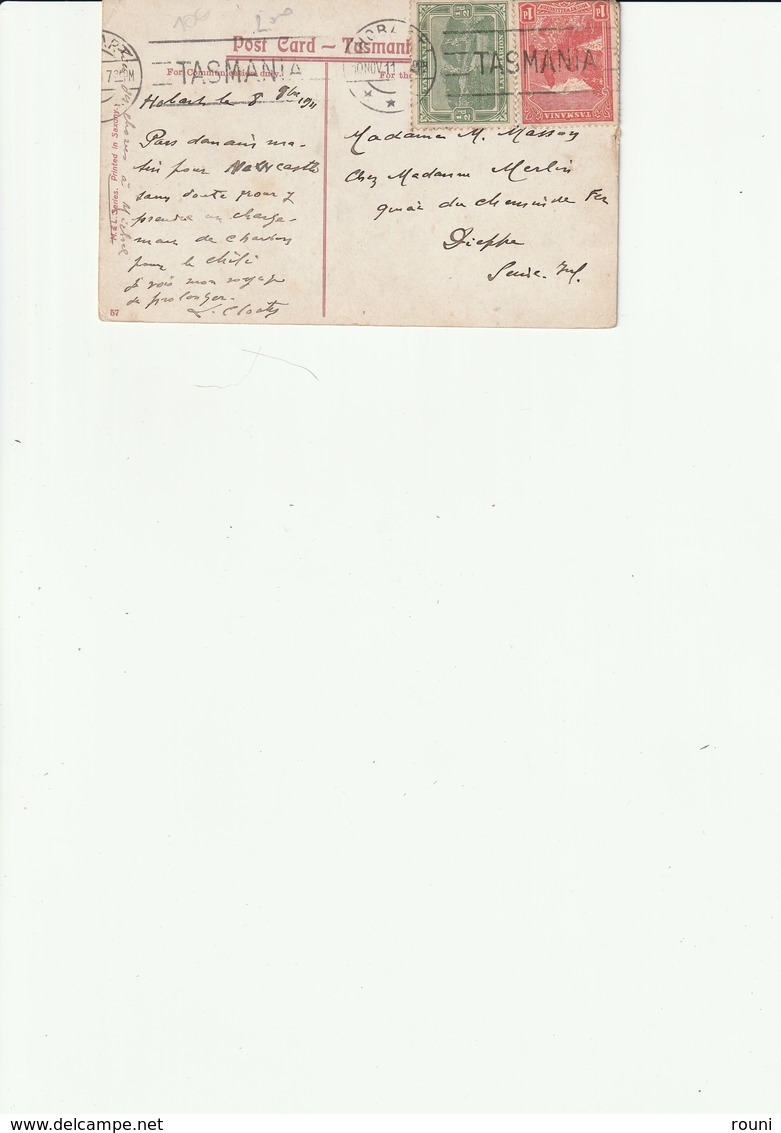 Post Card – Tasmani
For Communication only.
For the
TASMANIA
TASMANIA
7 30 PM
HOBA
30 NOV 11
½D
½D
1d
1d
TASMANIA
Hobart le 8 9bre 1911
Pars demain ma-
tin pour Newcastle
sans doute pour y
prendre un charge-
ment de charbon
pour le Chili
Je vois mon voyage
se prolonger.
Madame M. Masson
Chez Madame Merlin
quai du chemin de Fer
Dieppe
Seine. Inf.
à Michel
Series. Printed in Saxony.
57
delcampe.net
rouni